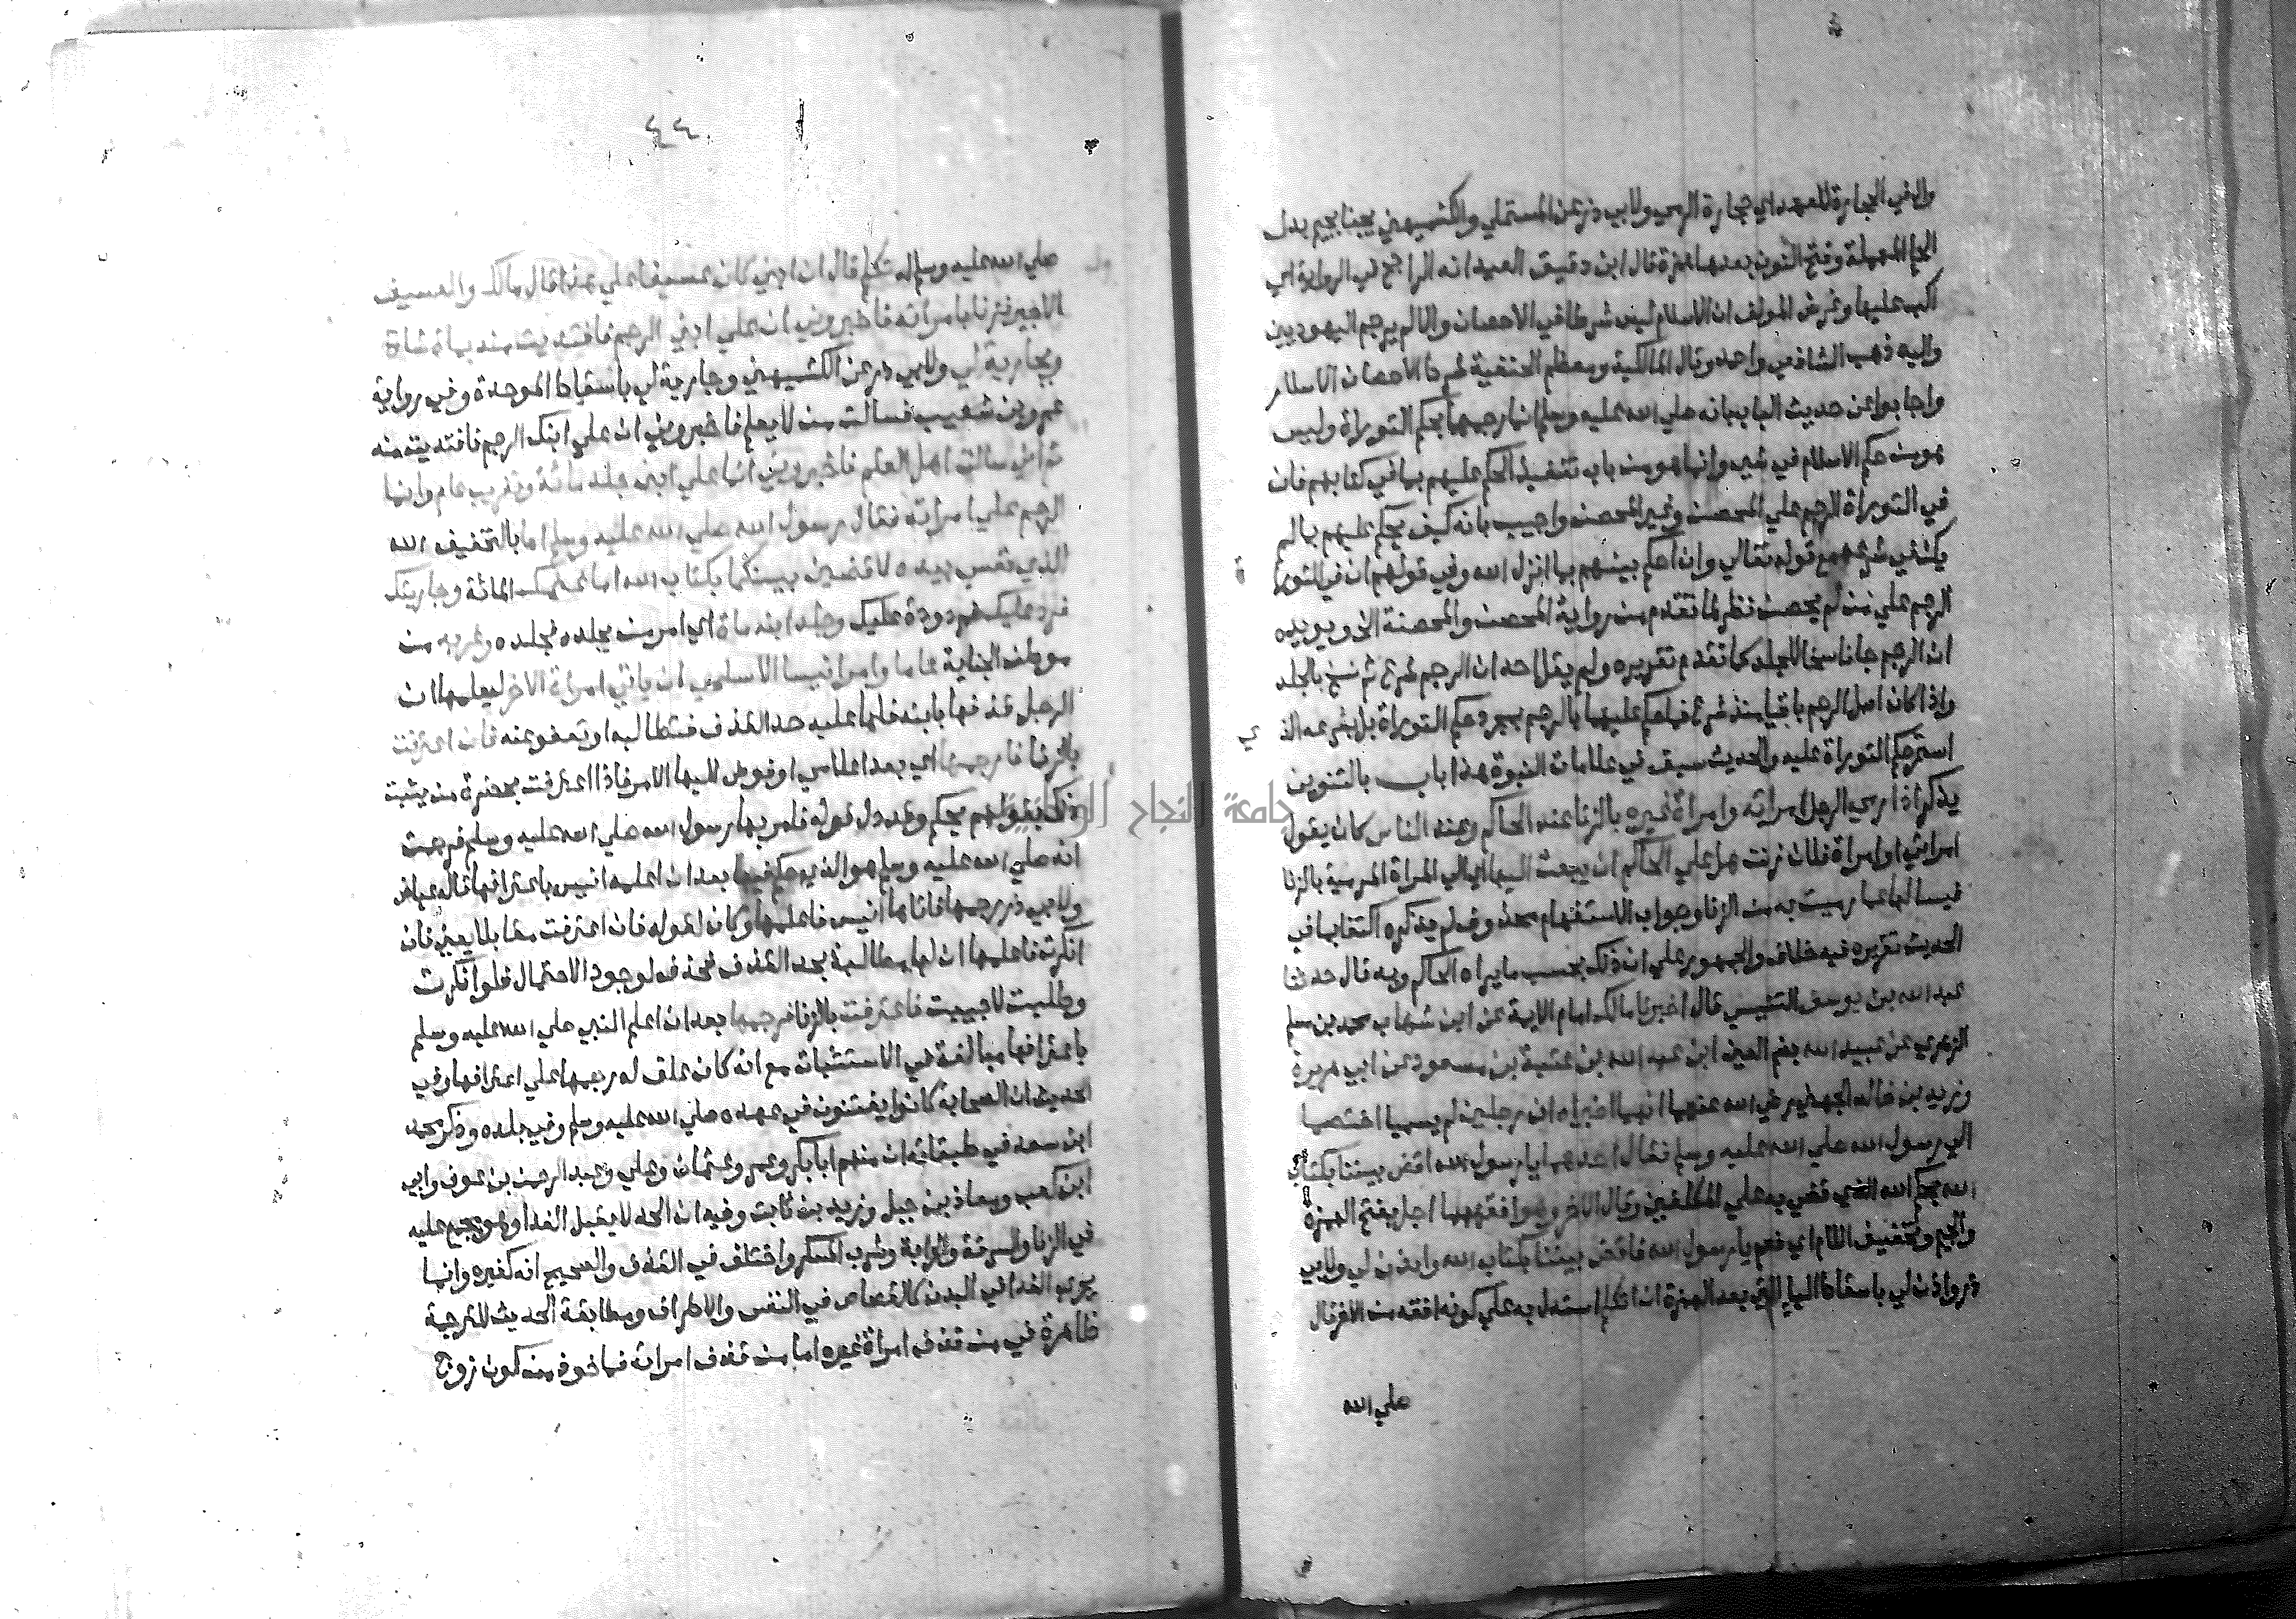 وال في الحجارة للعهد اي حجارة الرمي ولابي ذر عن المستملي والكشميهني يجنا بجيم بدل
الحا المهملة وفتح النون بعدها همزة قال ابن دقيق العيد انه الراجح في الرواية اي
اكب عليها وغرض المولف ان الاسلام ليس شرطا في الاحصان والا لم يرجم اليهوديين
واليه ذهب الشافعي واحمد وقال المالكية ومعظم الحنفية شرط الاحصان الاسلام
واجابوا عن حديث الباب بانه صلي الله عليه وسلم انما رجمهما بحكم التوراة وليس
هو من حكم الاسلام في شي وانما هو من باب تنفيذ الحكم عليهم بما في كتابهم فان
في التوراة الرجم علي المحصن وغير المحصن واجيب بانه كيف يحكم عليهم بما لم
يكن في شرعه مع قوله تعالي وان احكم بينهم بما انزل الله وفي قولهم ان في التوراة
الرجم علي من لم يحصن نظر لما تقدم من رواية المحصن والمحصنة الخ ويويده
ان الرجم جا ناسخا للجلد كما تقدم تقريره ولم يقل احد ان الرجم شرع ثم نسخ بالجلد
واذا كان اصل الرجم باقيا منذ شرع فما حكم عليهما بالرجم بمجرد حكم التوراة بل بشرعه الذي
استمر حكم التوراة عليه والحديث سبق في علامات النبوة هذا باب بالتنوين
يذكر اذا رمي الرجل امراته او امراة غيره بالزنا عند الحاكم وعند الناس كان يقول
امراتي او امراة فلان زنت هل علي الحاكم ان يبعث اليها اي الي المراة المرمية بالزنا
فيسالها عما رميت به من الزنا وجواب الاستفهام محذوف لم يذكره اكتفا بما في
الحديث تقريره فيه خلاف والجمهور علي ان ذلك بحسب ما يراه الحاكم وبه قال حدثنا
عبد الله بن يوسف التنيسي قال اخبرنا مالك امام الايمة عن ابن شهاب محمد بن مسلم
الزهري عن عبيد الله بضم العين ابن عبد الله بن عتبة بن مسعود عن ابي هريرة
وزيد بن خالد الجهني رضي الله عنهما انهما اخبراه ان رجلين لم يسميا اختصما
الي رسول الله صلي الله عليه وسلم فقال احدهما يا رسول الله اقض بيننا بكتاب
الله بحكم الله الذي قضي به علي المكلفين وقال الاخر وهو افقههما اجل بفتح الهمزة
والجيم وتخفيف اللام اي نعم يا رسول الله فاقض بيننا بكتاب الله وايذن لي ولابي
ذر واذن لي باسقاط اليا التي بعد الهمزة ان اتكلم استدل به علي كونه افقه من الاخر قال
صلي الله
٤٤
صلي الله عليه وسلم له تكلم قال ان ابني كان عسيفا علي هذا قال مالك والعسيف
الاجير فزنا بامراته فاخبروني ان علي ابني الرجم فافتديت منه بماية شاة
وبجارية لي ولابي ذر عن الكشميهني وجارية لي باسقاط الموحدة وفي رواية
عمرو بن شعيب فسالت من لا يعلم فاخبروني ان علي ابنك الرجم فافتديت منه
ثم اني سالت اهل العلم فاخبروني انما علي ابني جلد مائة وتغريب عام وانما
الرجم علي امراته فقال رسول الله صلي الله عليه وسلم اما بالتخفيف الله
الذي نفسي بيده لاقضين بينكما بكتاب الله اما غنمك المائة وجاريتك
فرد عليك مردودة عليك وجلد ابنه ماة اي امر من يجلده فجلده وغربه من
موطن الجناية عاما وامر انيسا الاسلمي ان ياتي امراة الاخر ليعلمها ان
الرجل قذفها بابنه فلها عليه حد القذف فتطالبه او تعفو عنه فان اعترفت
بالزنا فارجمها اي بعد اعلامي او فوض اليها الامر فاذا اعترفت بحضرة من يثبت
ذلك بقولهم يحكم وقد دل قوله فامر بها رسول الله صلي الله عليه وسلم فرجمت
انه صلي الله عليه وسلم هو الذي حكم فيها بعد ان اعلمه انيس باعترافها قاله عياض
ولابي ذر رجمها فاتاها انيس فاعلمها وكان لقوله فان اعترفت مقابلا يعني فان
انكرت فاعلمها ان لها مطالبة بحد القذف فحذف لوجود الاحتمال فلو انكرت
وطلبت لاجيبت فاعترفت بالزنا فرجمها بعد ان اعلم النبي صلي الله عليه وسلم
باعترافها مبالغة في الاستثبات مع انه كان علق له رجمها علي اعترافها وفي
الحديث ان الصحابة كانوا يفتنون في عهده صلي الله عليه وسلم وفي بلده وذكر محمد
ابن سعد في طبقاته ان منهم ابا بكر وعمر وعثمان وعلي وعبد الرحمن بن عوف وابي
ابن كعب ومعاذ بن جبل وزيد بن ثابت وفيه ان الحد لا يقبل الفدا وهو مجمع عليه
في الزنا والسرقة والحرابة وشرب المسكر واختلف في القذف والصحيح انه كغيره وانما
يجري الفدا في البدن كالقصاص في النفس والاطراف ومطابقة الحديث للترجمة
ظاهرة في من قذف امراة غيره اما من قذف امراته فماخوذ من كون زوج
جامعة النجاح الوطنية